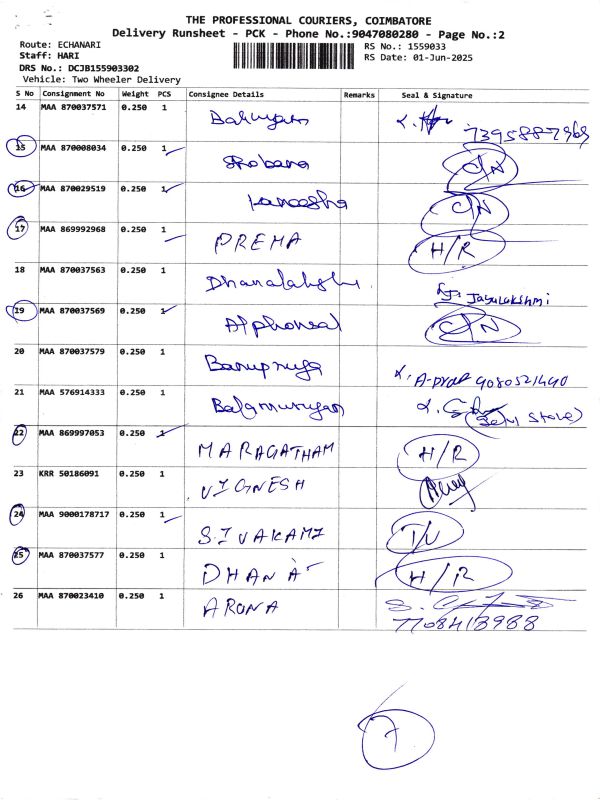 THE PROFESSIONAL COURIERS, COIMBATORE
Delivery Runsheet - PCK - Phone No.:9047080280 - Page No.:2
Route: ECHANARI RS No.: 1559033
Staff: HARI RS Date: 01-Jun-2025
DRS No.: DCJB155903302
Vehicle: Two Wheeler Delivery
S No Consignment No Weight PCS Consignee Details Remarks Seal & Signature
14 MAA 870037571 0.250 1
15 MAA 870008034 0.250 1 Shobana C/N
16 MAA 870029519 0.250 1 C/N
17 MAA 869992968 0.250 1 PREMA H/R
18 MAA 870037563 0.250 1 Dhanalakshmi Jayalakshmi
19 MAA 870037569 0.250 1 Alphonsal C/N
20 MAA 870037579 0.250 1 9080521490
21 MAA 576914333 0.250 1 Balamurugan
22 MAA 869997053 0.250 1 MARAGATHAM H/R
23 KRR 50186091 0.250 1 VIGNESH
24 MAA 9000178717 0.250 1 SIVAKAMI
25 MAA 870037577 0.250 1 DHANA H/R
26 MAA 870023410 0.250 1 ARUNA
7708413988
7